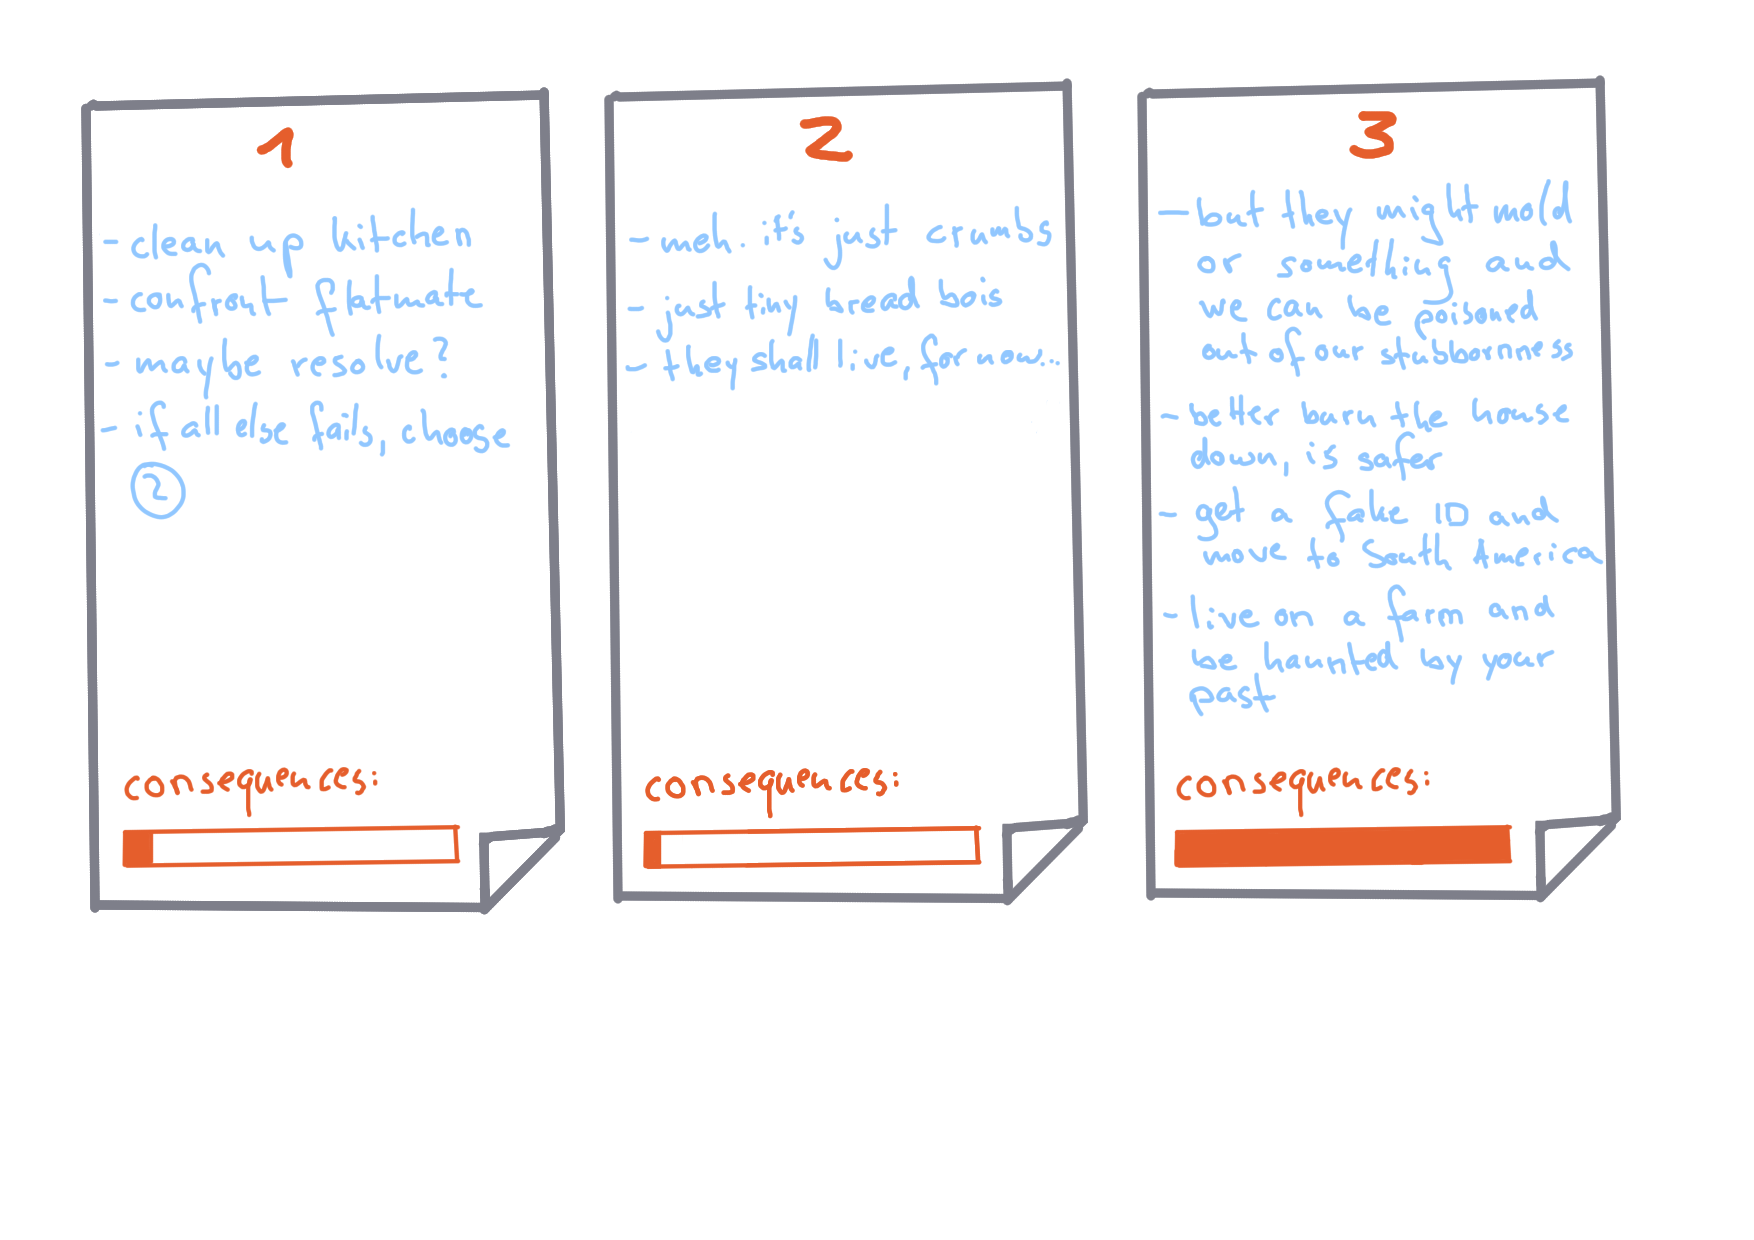 1
- clean up kitchen
- confront flatmate
- maybe resolve?
- if all else fails, choose
2
consequences:
2
- meh. it's just crumbs
- just tiny bread bois
- they shall live, for now...
consequences:
3
- but they might mold
or something and
we can be poisoned
out of our stubbornness
- better burn the house
down, is safer
- get a fake ID and
move to South America
- live on a farm and
be haunted by your
past
consequences: